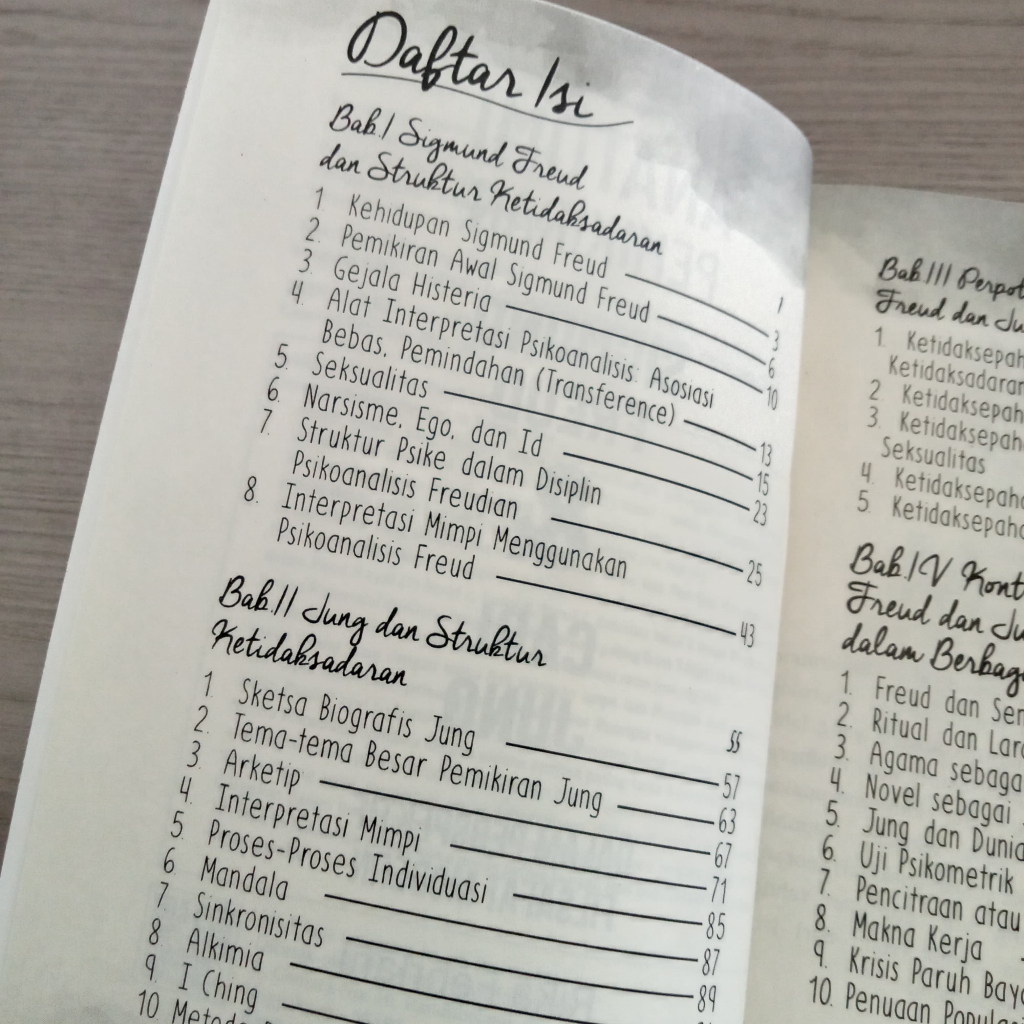 Daftar Isi
Bab.I Sigmund Freud
dan Struktur Ketidaksadaran 1
1. Kehidupan Sigmund Freud 3
2. Pemikiran Awal Sigmund Freud 6
3. Gejala Histeria 10
4. Alat Interpretasi Psikoanalisis: Asosiasi
Bebas, Pemindahan (Transference) 13
5. Seksualitas 15
6. Narsisme, Ego, dan Id 23
7. Struktur Psike dalam Disiplin
Psikoanalisis Freudian 25
8. Interpretasi Mimpi Menggunakan
Psikoanalisis Freud 43
Bab.II Jung dan Struktur
Ketidaksadaran 55
1. Sketsa Biografis Jung 57
2. Tema-tema Besar Pemikiran Jung 63
3. Arketip 67
4. Interpretasi Mimpi 71
5. Proses-Proses Individuasi 85
6. Mandala 87
7. Sinkronisitas 89
8. Alkimia
9. I Ching
10.
Bab.III
Freud dan
1.
2.
3.
Seksualitas
4.
5.
Bab.IV
Freud dan
dalam
1. Freud dan
2. Ritual dan
3. Agama
4. Novel sebagai
5. Jung dan
6. Uji Psikometrik
7. Pencitraan atau
8. Makna Kerja
9. Krisis Paruh
10. Penuaan